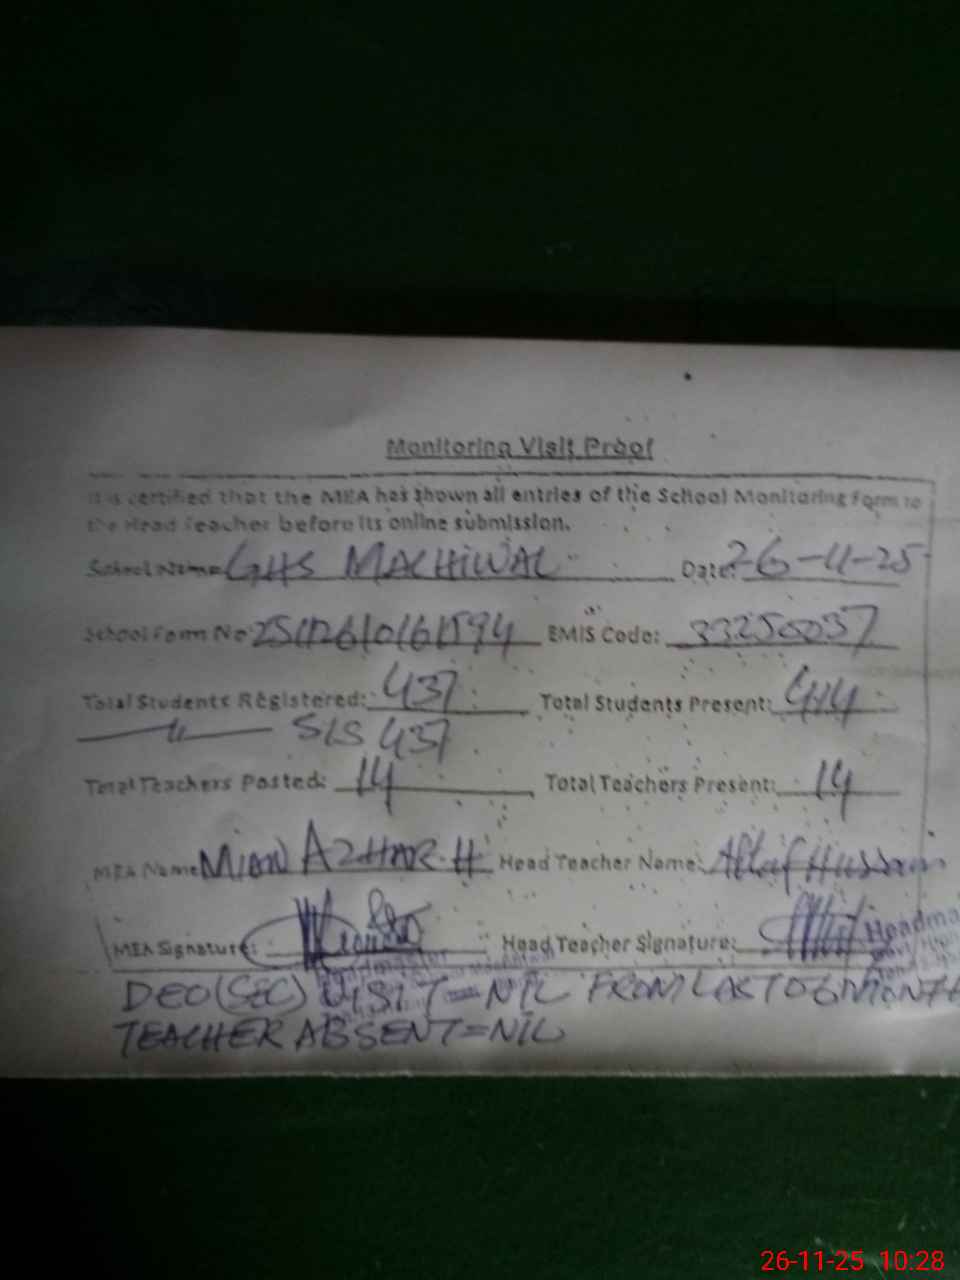 Monitoring Visit Proof
It is certified that the MEA has shown all entries of the School Monitoring Form to
the Head Teacher before its online submission.
School Name GHS MACHIWAL Date: 26-11-25
School Form No EMIS Code: 33250037
Total Students Registered: 437 Total Students Present: 414
SIS 437
Total Teachers Posted: 14 Total Teachers Present: 14
MEA Name MIAN AZHAR H Head Teacher Name: Altaf Hussain
MEA Signature: Head Teacher Signature:
Headma
DEO(SEC) VISIT = NIL FROM LAST 06 MONTH
TEACHER ABSENT = NIL
26-11-25 10:28